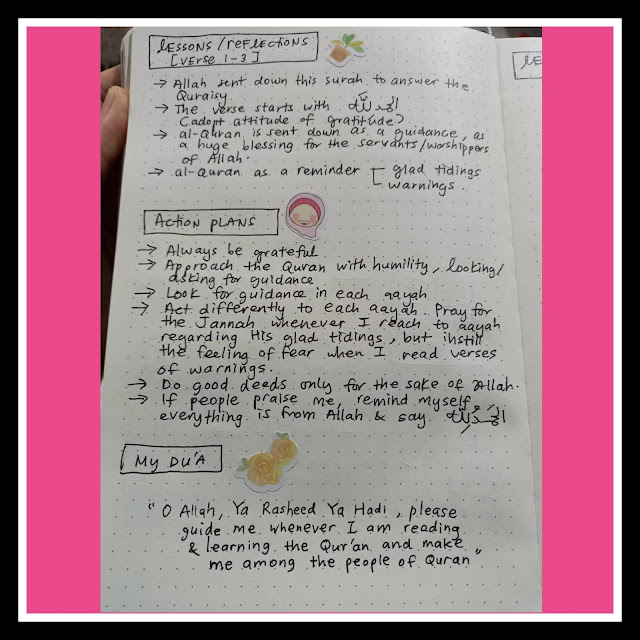 LESSONS/REFLECTIONS
[VERSE 1-3]
→ Allah sent down this surah to answer the
Quraisy
→ The verse starts with الحمد لله
(adopt attitude of gratitude)
→ al-Quran is sent down as a guidance, as
a huge blessing for the servants/worshippers
of Allah.
→ al-Quran as a reminder [ glad tidings
warnings.
ACTION PLANS
→ Always be grateful
→ Approach the Quran with humility, looking/
asking for guidance
→ Look for guidance in each aayah
→ Act differently to each aayah. Pray for
the Jannah whenever I reach to aayah
regarding His glad tidings, but instill
the feeling of fear when I read verses
of warnings.
→ Do good deeds only for the sake of Allah.
→ If people praise me, remind myself
everything is from Allah & say الحمد لله
MY DU'A
"O Allah, Ya Rasheed Ya Hadi, please
guide me whenever I am reading
& learning the Qur'an and make
me among the people of Quran"
LE